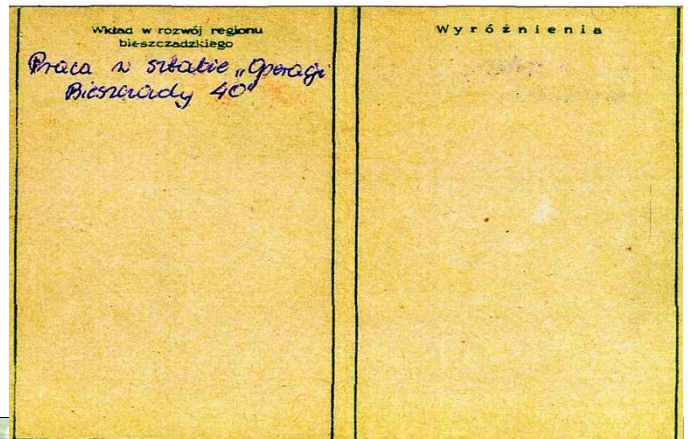 Wkład w rozwój regionu
bieszczadzkiego
Praca w sztabie „Operacji
Bieszczady 40"
Wyróżnienia